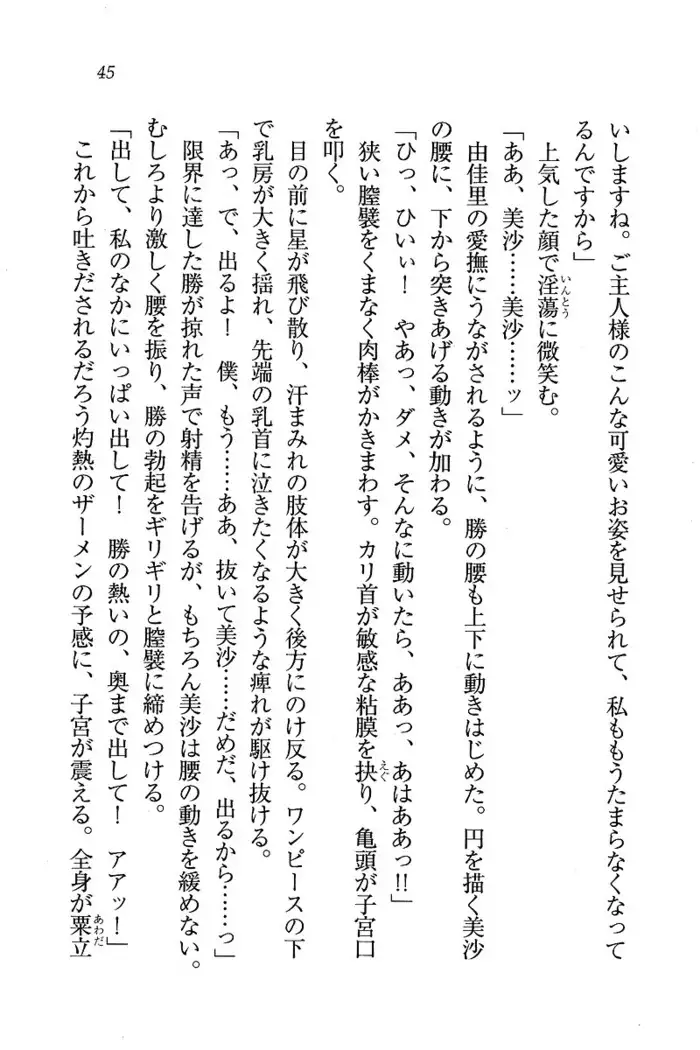 45
いしますね。ご主人様のこんな可愛いお姿を見せられて、私ももうたまらなくなって
るんですから」
上気した顔で淫蕩に微笑む。
いんとう
「ああ、美沙……美沙……ッ」
由佳里の愛撫にうながされるように、勝の腰も上下に動きはじめた。円を描く美沙
の腰に、下から突きあげる動きが加わる。
「ひっ、ひいぃ！　やあっ、ダメ、そんなに動いたら、ああっ、あはああっ!!」
狭い膣襞をくまなく肉棒がかきまわす。カリ首が敏感な粘膜を抉り、亀頭が子宮口
えぐ
を叩く。
目の前に星が飛び散り、汗まみれの肢体が大きく後方にのけ反る。ワンピースの下
で乳房が大きく揺れ、先端の乳首に泣きたくなるような痺れが駆け抜ける。
「あっ、で、出るよ！　僕、もう……ああ、抜いて美沙……だめだ、出るから……っ」
限界に達した勝が掠れた声で射精を告げるが、もちろん美沙は腰の動きを緩めない。
むしろより激しく腰を振り、勝の勃起をギリギリと膣襞に締めつける。
「出して、私のなかにいっぱい出して！　勝の熱いの、奥まで出して！　アアッ！」
これから吐きだされるだろう灼熱のザーメンの予感に、子宮が震える。全身が粟立
あわだ